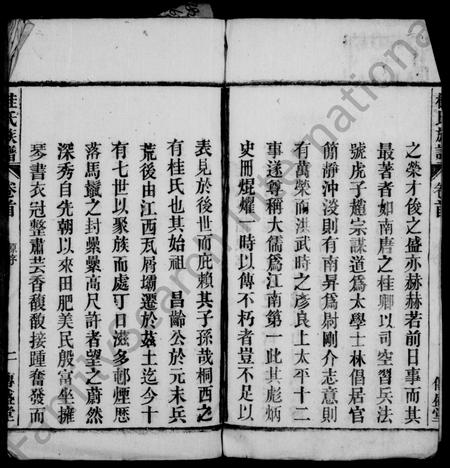 之榮才俊之盛亦赫赫若前日事而其
最著者如南唐之桂卿以司空習兵法
號虎子趙宗謀道爲太學士林倡居官
簡靜沖淡則有南昇爲尉剛介志意則
有萬榮而洪武時之彥良上太平十二
事遂尊稱大儒爲江南第一此其彪炳
史冊焜燿一時以傳不朽者豈不足以
桂氏族譜
卷首
傳盛堂
表見於後世而庇賴其子孫哉桐西之
有桂氏也其始祖 昌齡公於元末兵
荒後由江西瓦屑壩遷於茲土迄今十
有七世以聚族而處可日滋多邨煙歷
落馬鬣之封纍纍高尺許者望之蔚然
深秀自先朝以來田肥美民殷富坐擁
琴書衣冠整肅芸香馥馥接踵奮發而
桂氏族譜
卷首
二
傳盛堂
FamilySearch International